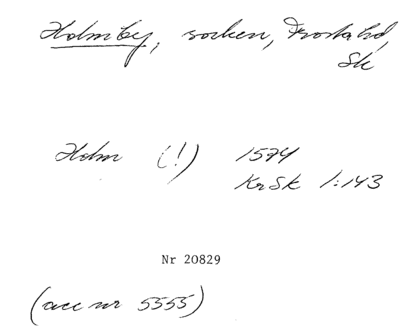 Holmby, socken, Frosta hd,
Sk
Holm (!) 1574
KrSk 1:143
Nr 20829
(acc nr 5555)